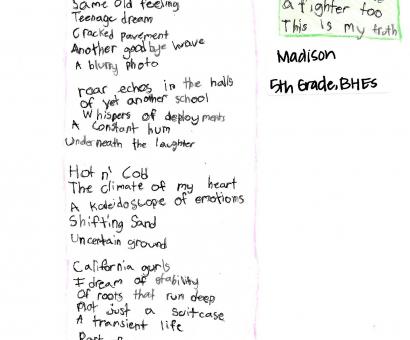 Same old feeling
Teenage dream
Cracked pavement
Another goodbye wave
A blurry photo
roar echos in the halls
of yet another school
Whispers of deployments
A constant hum
Underneath the laughter
Hot n' Cold
The climate of my heart
A kaleidoscope of emotions
Shifting Sand
Uncertain ground
California gurls
I dream of stability
Of roots that run deep
Not just a suitcase
A transient life
a fighter too
This is my truth
Madison
5th Grade, BHES